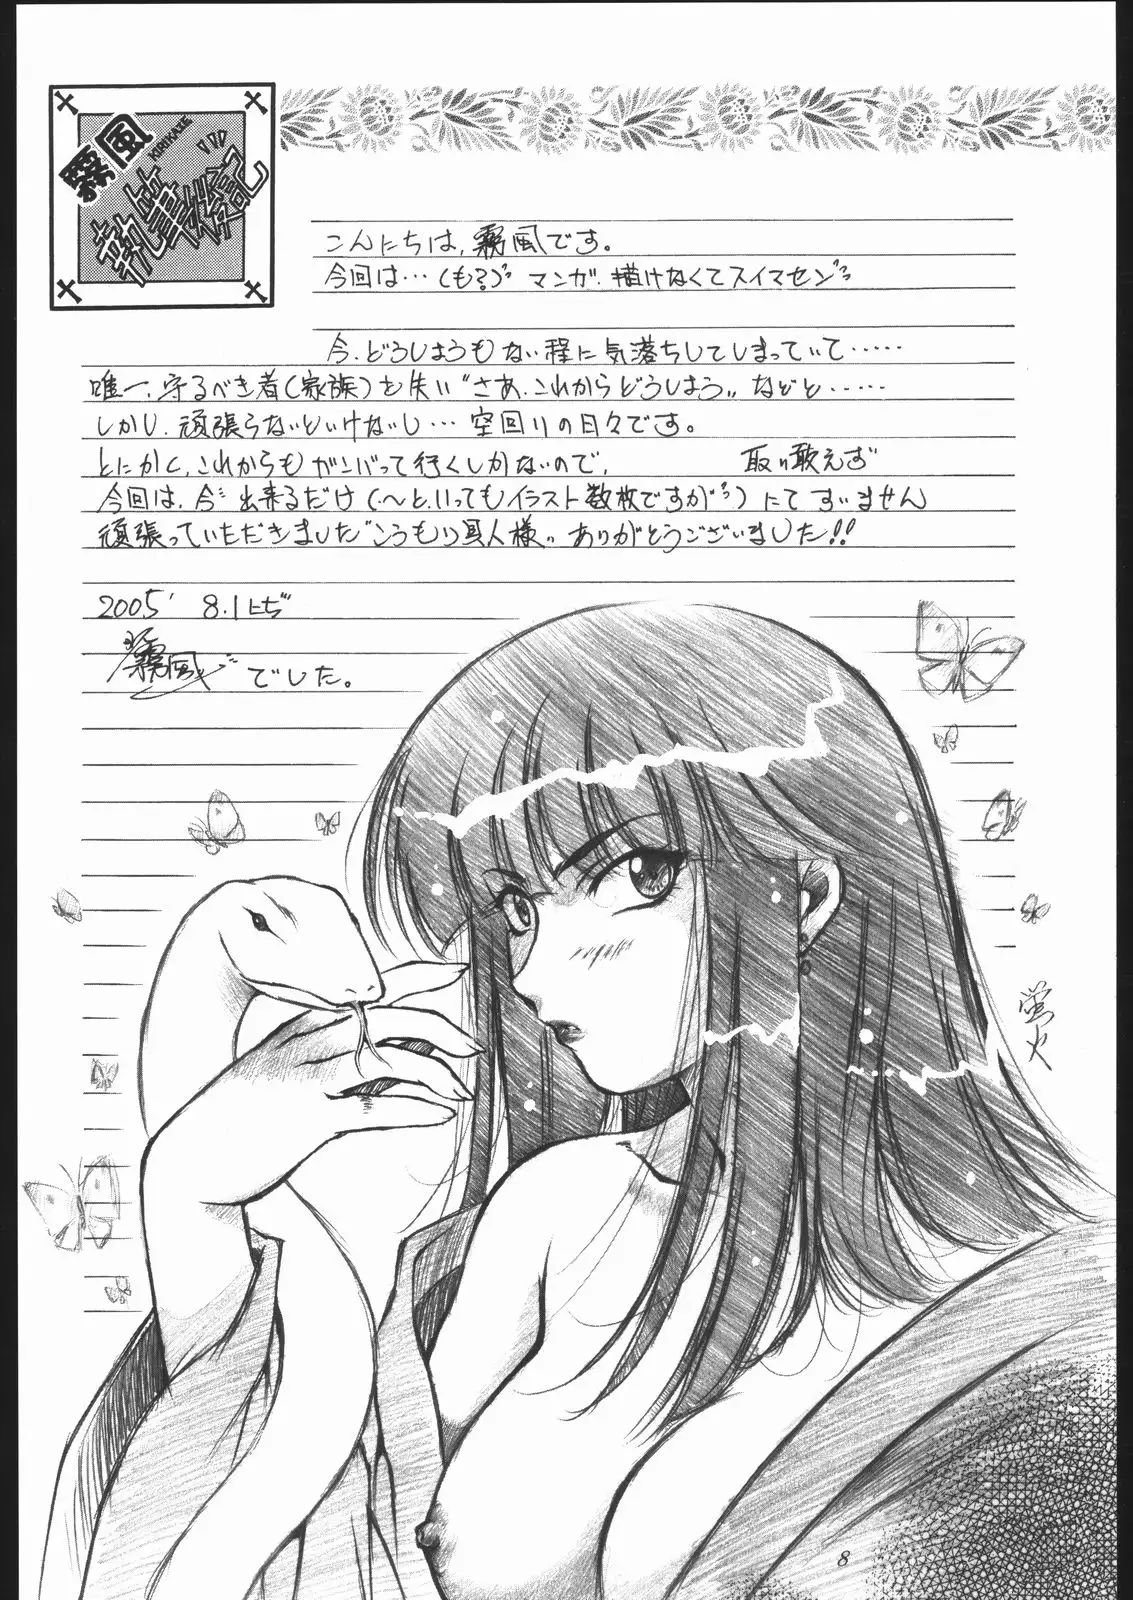 霧風
KIRIKAZE
執筆後記
こんにちは、霧風です。
今回は…(も?)" マンガ、描けなくてスイマセン"
今、どうしようもない程に気落ちしてしまっていて……
唯一、守るべき者(家族)を失い"さあ、これからどうしよう"などと……
しかし、頑張らないといけないし…空回りの日々です。
とにかく、これからもガンバって行くしかないので、 取り敢えず
今回は、今 出来るだけ(〜と、いってもイラスト数枚ですが")にて すいません
頑張っていただきました"こうもり 様" ありがとうございました!!
2005' 8.1にぢ
霧風 でした。
蛍火
8